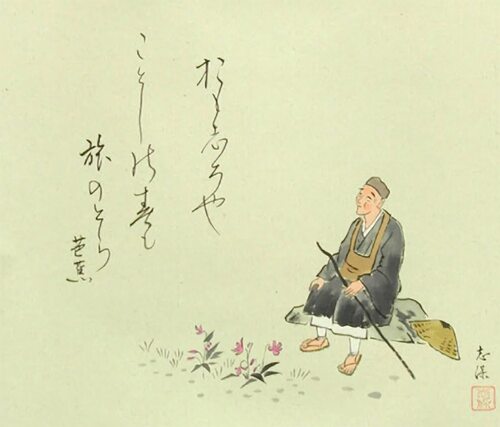 おも志ろや
ことしの春も
旅のそら
芭蕉